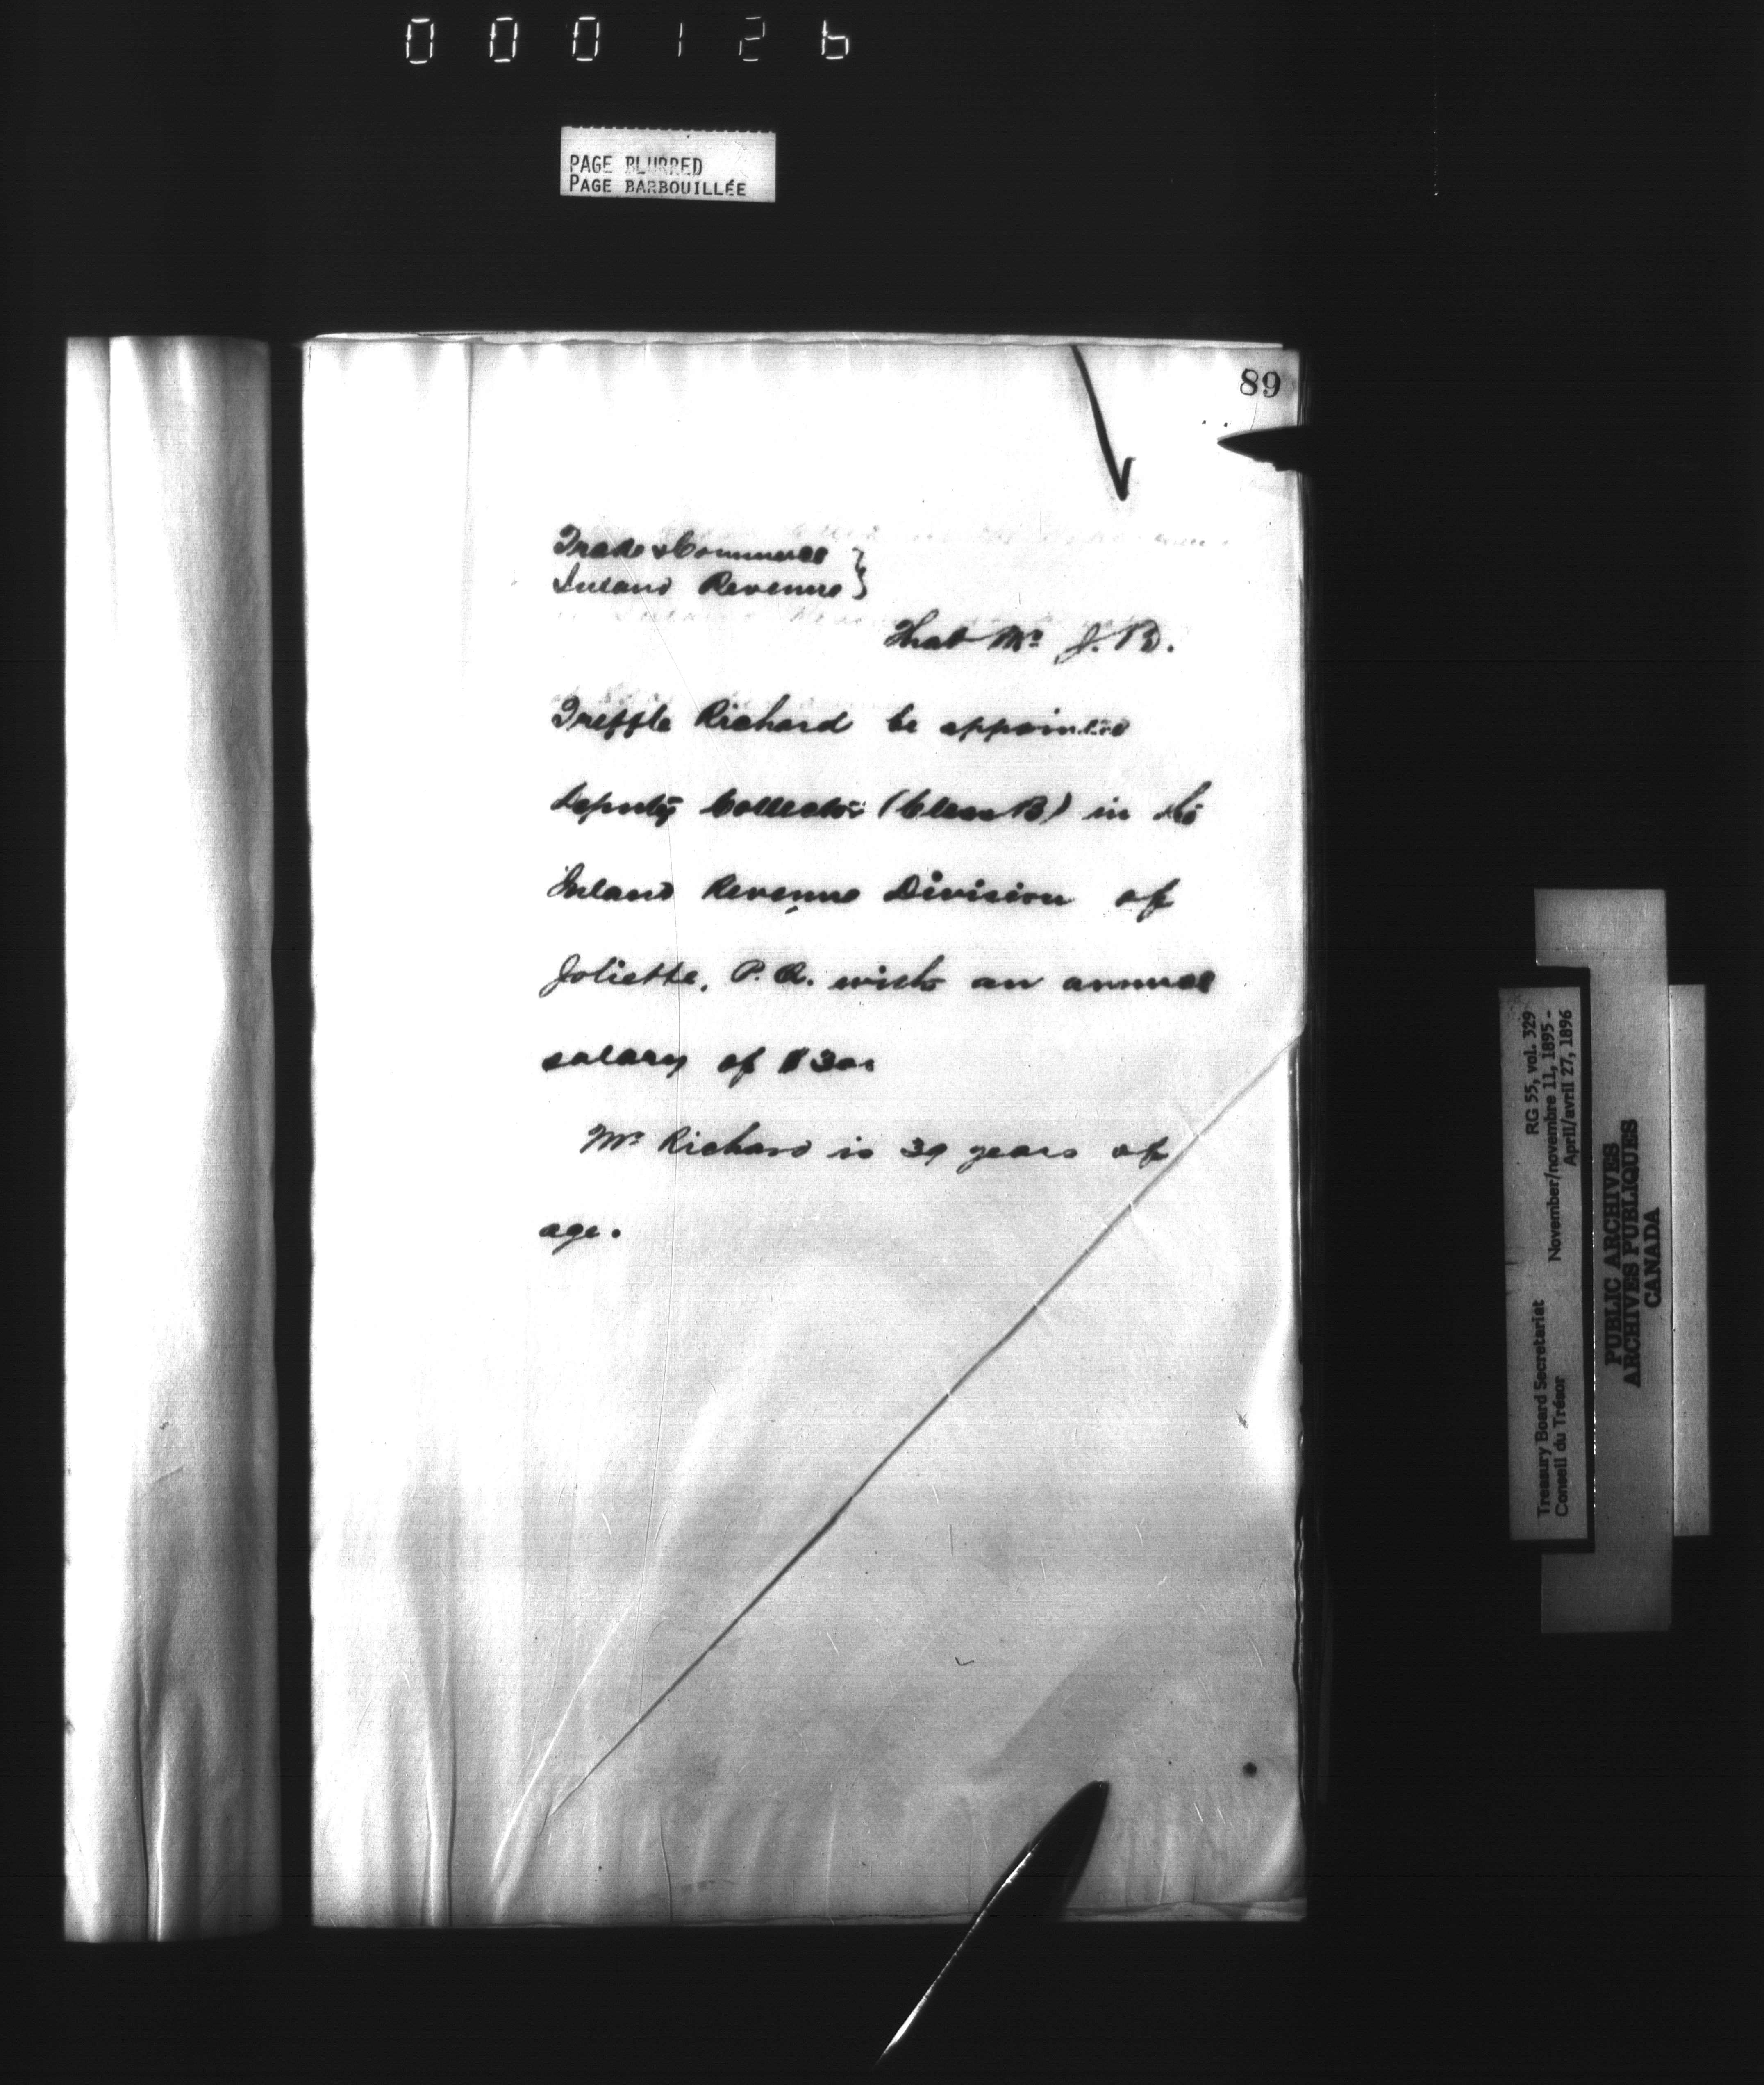 000126
PAGE BLURRED
PAGE BARBOUILLÉE
89
Trade & Commerce }
Inland Revenue }
That Mr J. B.
Treffle Richard be appointed
Deputy Collector (Class B) in the
Inland Revenue Division of
Joliette, P. Q. with an annual
salary of $300
Mr Richard is 39 years of
age.
Treasury Board Secretariat RG 55, vol. 329
Conseil du Trésor November/novembre 11, 1895 -
April/avril 27, 1896
PUBLIC ARCHIVES
ARCHIVES PUBLIQUES
CANADA